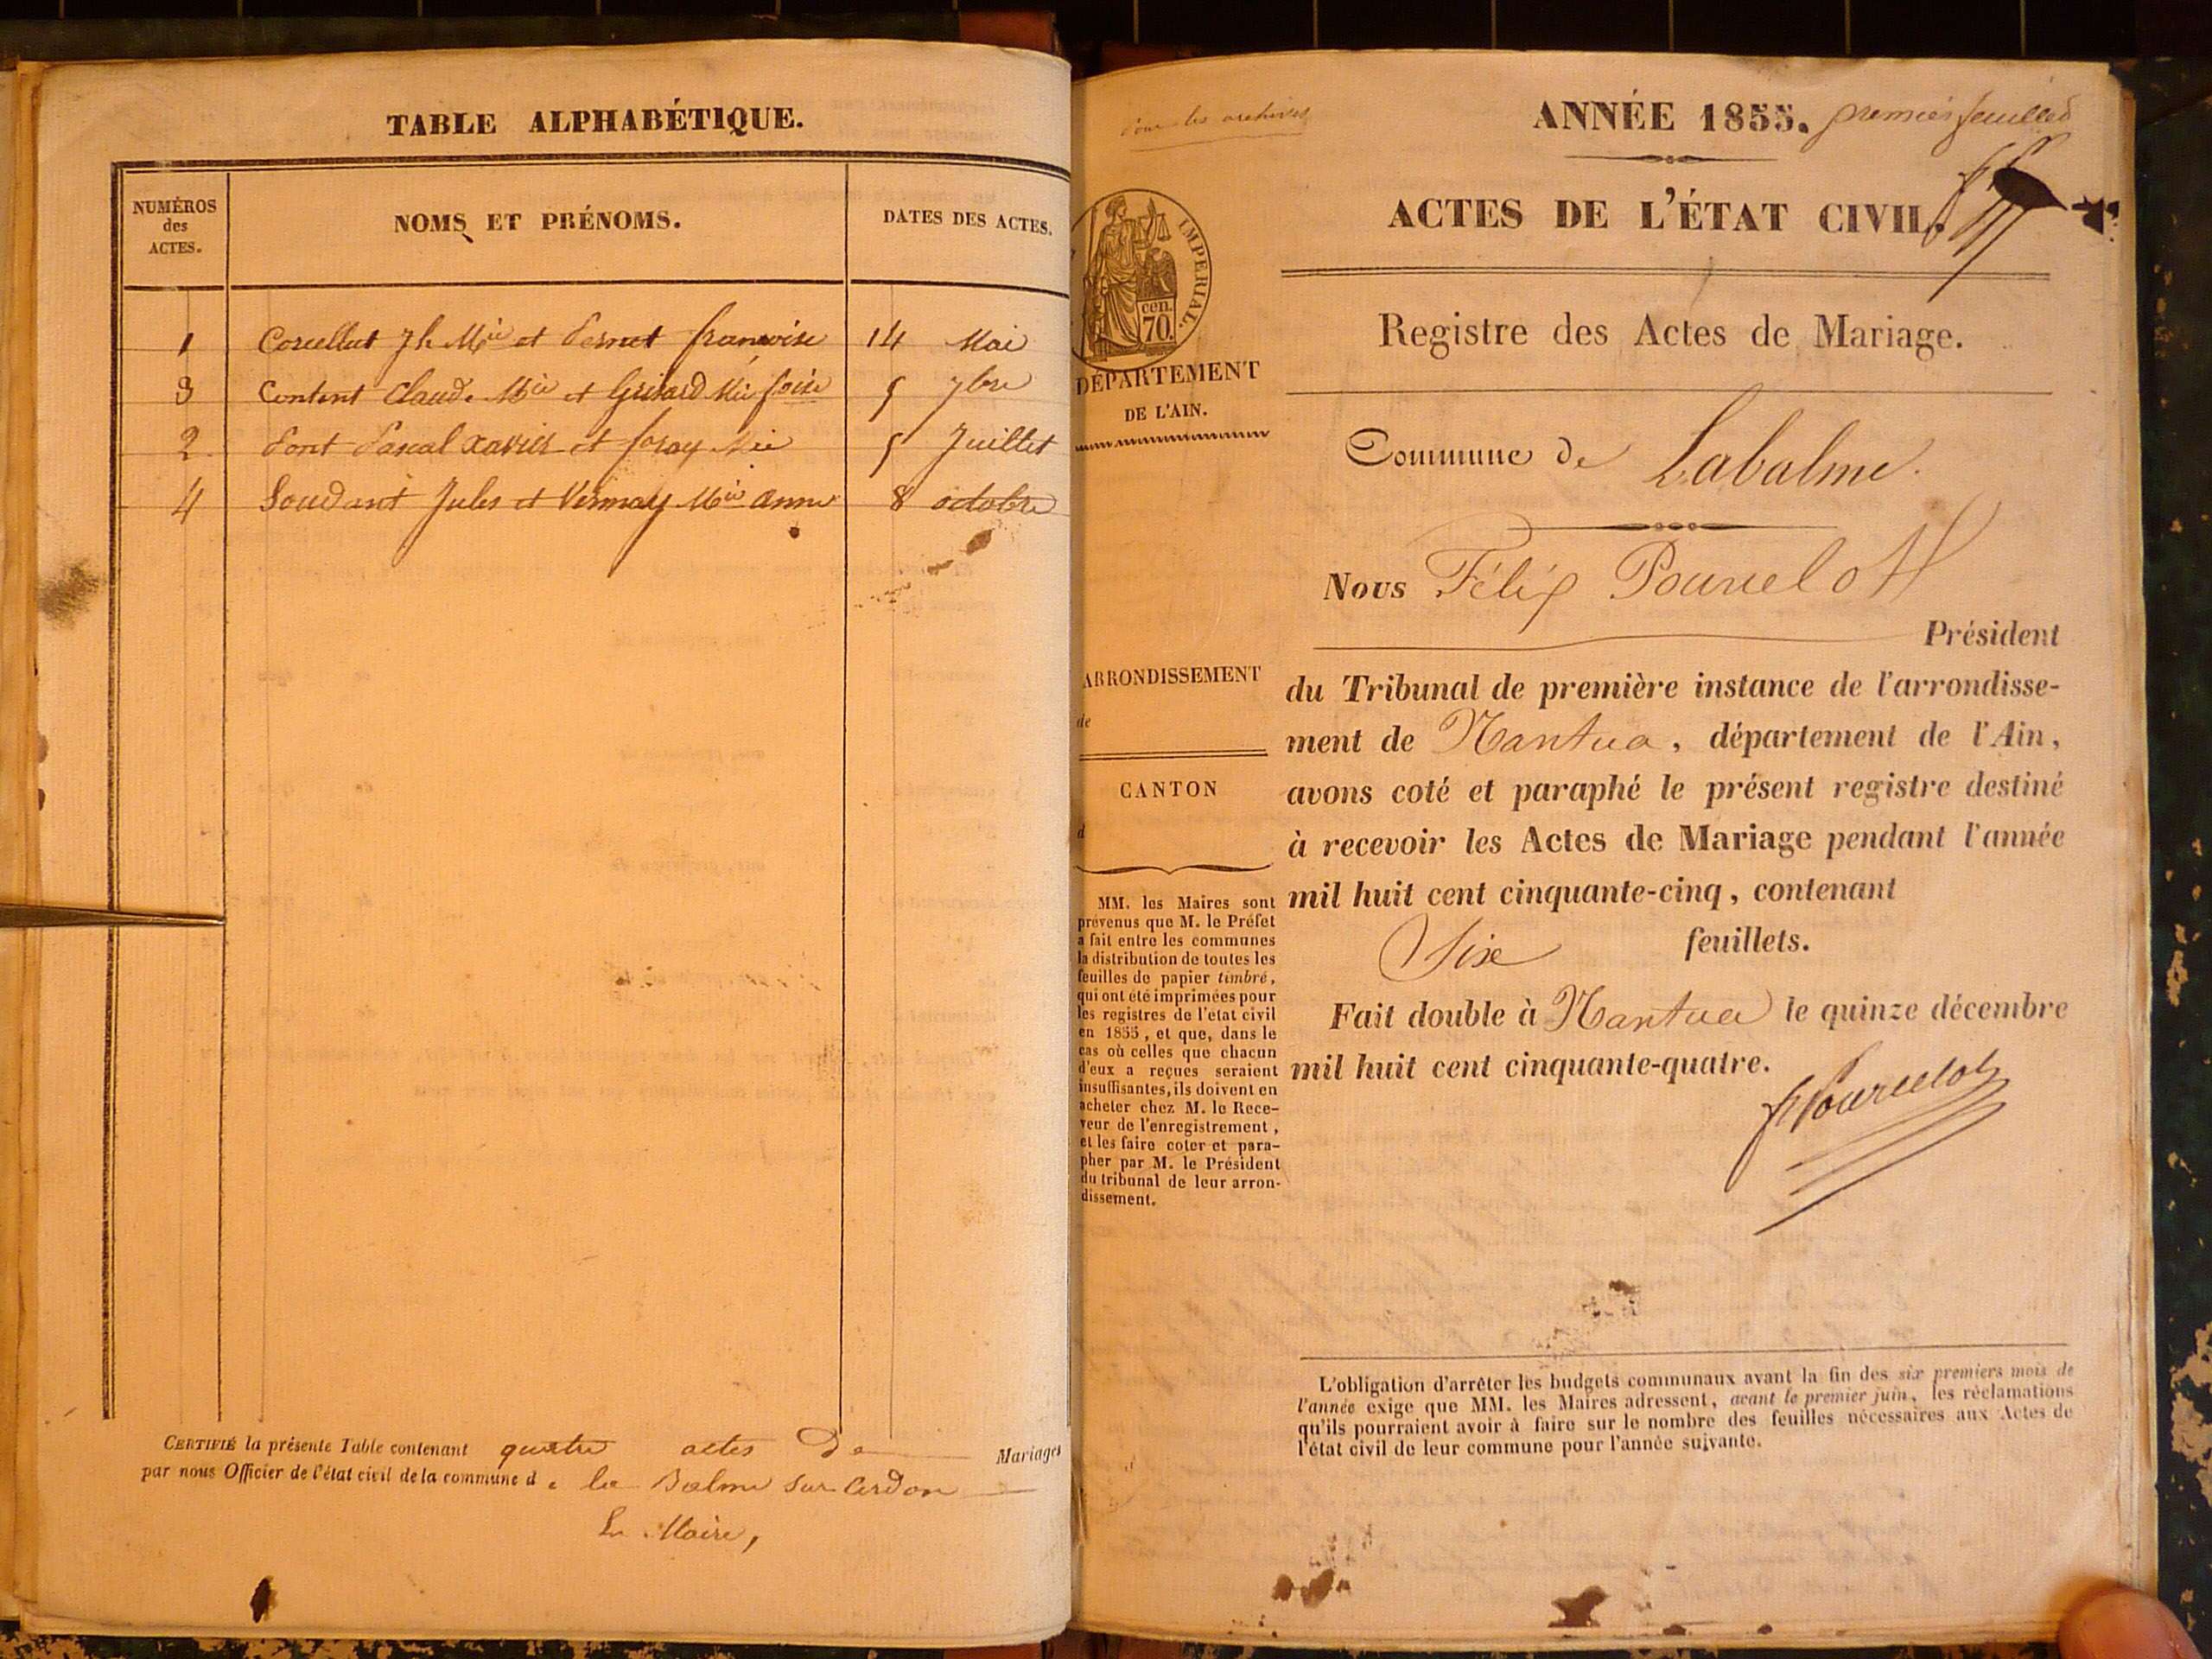 TABLE ALPHABÉTIQUE.
NUMÉROS
des
ACTES.
NOMS ET PRÉNOMS.
DATES DES ACTES.
1 Corcellut Jh Mie et Pernet françoise 14 Mai
3 Content Claude Mie et Grisard Mie foise 5 7bre
2 Pont Pascal Xavier et foray Mie 5 Juillet
4 Soudant Jules et Vernay Mie anne 8 octobre
CERTIFIÉ la présente Table contenant quatre actes De Mariages
par nous Officier de l'état civil de la commune d e la Balme sur Cerdon
Le Maire,
Pour les archives
ANNÉE 1855. premier feuillet
ACTES DE L'ÉTAT CIVIL.
IMPERIAL.
cen.
70.
Registre des Actes de Mariage.
DÉPARTEMENT
DE L'AIN.
Commune de Labalme.
Nous Félix Pourcelot
Président
ARRONDISSEMENT
de
CANTON
d
du Tribunal de première instance de l'arrondisse-
ment de Nantua, département de l'Ain,
avons coté et paraphé le présent registre destiné
à recevoir les Actes de Mariage pendant l'année
mil huit cent cinquante-cinq, contenant
Six feuillets.
Fait double à Nantua le quinze décembre
mil huit cent cinquante-quatre.
f Pourcelot
MM. les Maires sont
prévenus que M. le Préfet
a fait entre les communes
la distribution de toutes les
feuilles de papier timbré,
qui ont été imprimées pour
les registres de l'état civil
en 1855, et que, dans le
cas où celles que chacun
d'eux a reçues seraient
insuffisantes, ils doivent en
acheter chez M. le Rece-
veur de l'enregistrement,
et les faire coter et para-
pher par M. le Président
du tribunal de leur arron-
dissement.
L'obligation d'arrêter les budgets communaux avant la fin des six premiers mois de
l'année exige que MM. les Maires adressent, avant le premier juin, les réclamations
qu'ils pourraient avoir à faire sur le nombre des feuilles nécessaires aux Actes de
l'état civil de leur commune pour l'année suivante.